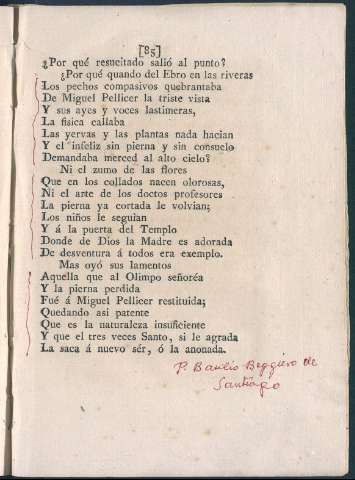 [85]
¿Por qué resucitado salió al punto?
¿Por qué quando del Ebro en las riveras
Los pechos compasivos quebrantaba
De Miguel Pellicer la triste vista
Y sus ayes y voces lastimeras,
La física callaba
Las yervas y las plantas nada hacian
Y el infeliz sin pierna y sin consuelo
Demandaba merced al alto cielo?
Ni el zumo de las flores
Que en los collados nacen olorosas,
Ni el arte de los doctos profesores
La pierna ya cortada le volvian;
Los niños le seguian
Y á la puerta del Templo
Donde de Dios la Madre es adorada
De desventura á todos era exemplo.
Mas oyó sus lamentos
Aquella que al Olimpo señoréa
Y la pierna perdida
Fué á Miguel Pellicer restituida;
Quedando asi patente
Que es la naturaleza insuficiente
Y que el tres veces Santo, si le agrada
La saca á nuevo sér, ó la anonada.
P. Basilio Boggiero de
Santiago